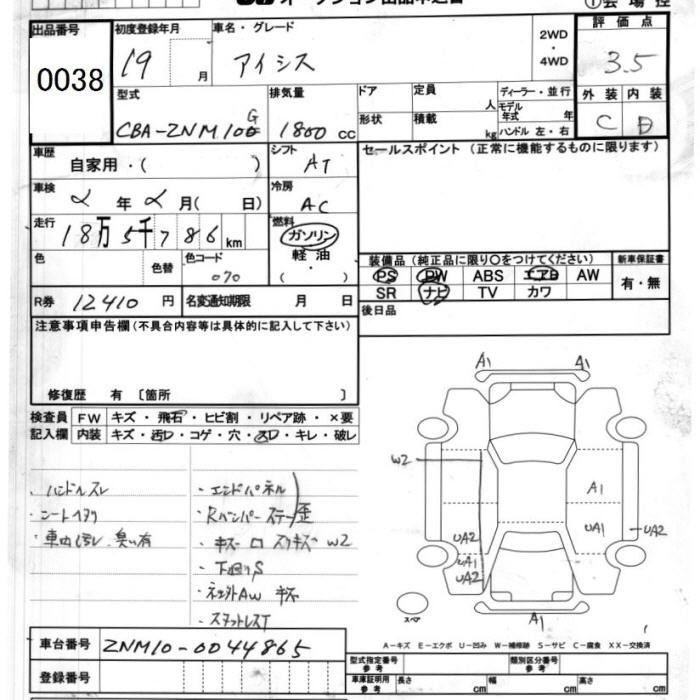 出品番号 初度登録年月 車名・グレード 2WD・4WD 評価点
0038 19 月 アイシス 3.5
型式 排気量 ドア 定員 人 ディーラー・並行 外装 内装
CBA-ZNM10G 1800 cc 形状 積載 kg モデル年式 年 ハンドル 左・右 C D
車歴 自家用・( ) シフト AT セールスポイント (正常に機能するものに限ります)
車検 2年2月( 日) 冷房 AC
走行 18万5千786km 燃料 ガソリン
軽油
・
( )
色 色替 色コード 070 装備品 (純正品に限り○をつけてください) 新車保証書
PS PW ABS エアB AW 有・無
SR ナビ TV カワ
R券 12410 円 名変通知期限 月 日 後日品
注意事項申告欄 (不具合内容等は具体的に記入して下さい)
修復歴 有 〔箇所 〕
検査員 FW キズ・飛石・ヒビ割・リペア跡・×要
記入欄 内装 キズ・汚レ・コゲ・穴・スレ・キレ・破レ
・ハンドルスレ
・シートヘタリ
・車内汚レ、臭い有
・エンドパネル
・Rバンパーステー 歪
・キズ ロ スリキズ W2
・下廻りS
・社外AW キズ
・スタットレスT
A1 A1
W2
A1
UA1
UA2 UA2
UA1
UA2
スペア A1
A-キズ E-エクボ U-凹み W-補修跡 S-サビ C-腐食 XX-交換済
車台番号 ZNM10-0044865
登録番号
型式指定番号 参考 類別区分番号 参考
車庫証明用 参考 長さ cm 幅 cm 高さ cm